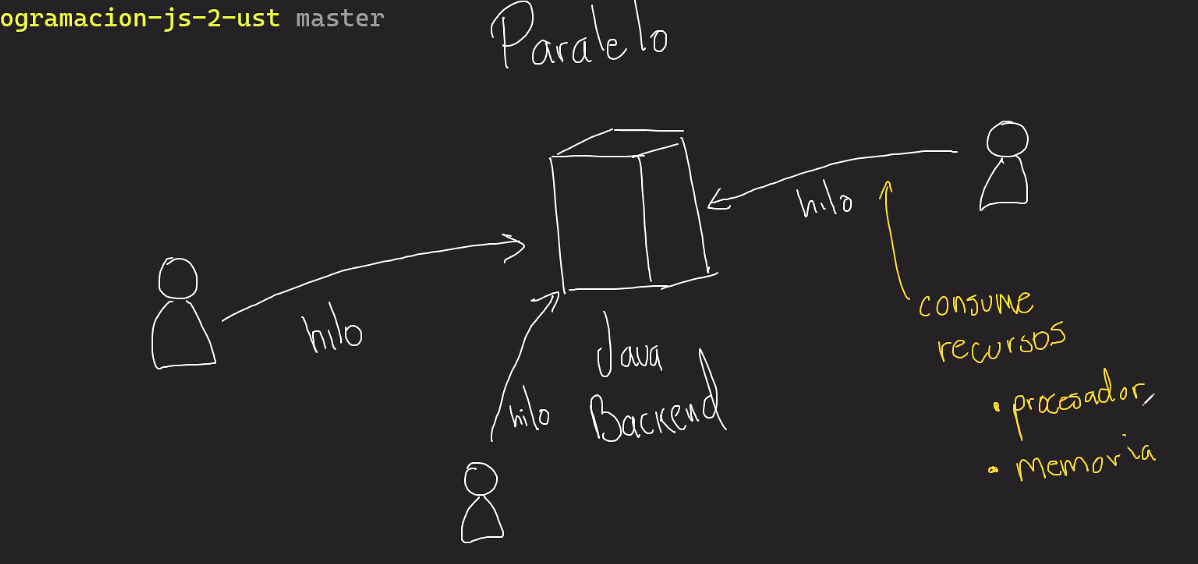 ogramacion-js-2-ust master
Paralelo
hilo
hilo
hilo
Java
Backend
consume
recursos
• procesador
• memoria